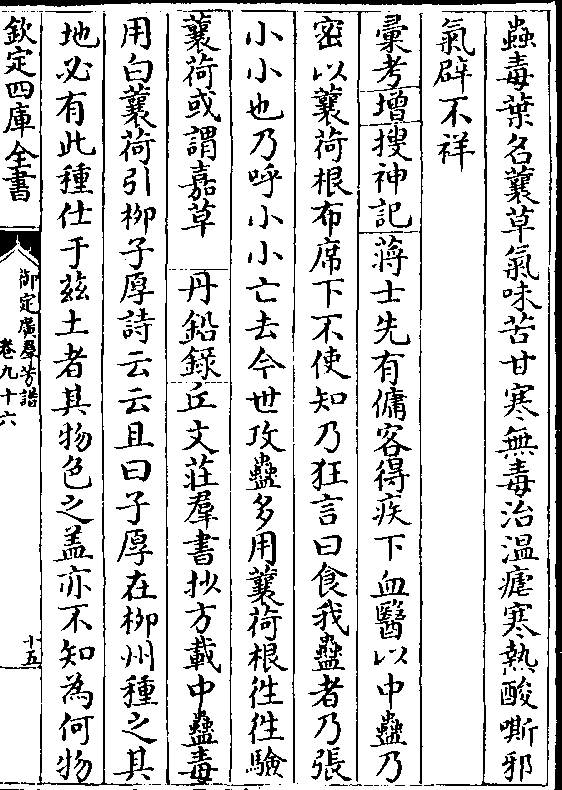 蟲毒葉名蘘草氣味苦甘寒無毒治溫瘧寒熱酸嘶邪
氣辟不祥
彚考增搜神記蔣士先有傭客得疾下血醫以中蠱乃
密以蘘荷根布席下不使知乃狂言曰食我蠱者乃張
小小也乃呼小小亡去今世攻蠱多用蘘荷根徃徃驗
蘘荷或謂嘉草　丹鉛録丘文莊羣書抄方載中蠱毒
用白蘘荷引柳子厚詩云云且曰子厚在柳州種之其
地必有此種仕于兹土者其物色之盖亦不知為何物
欽定四庫全書
御定廣羣芳譜
卷九十六
十五